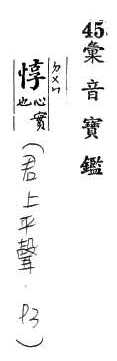 45.彙音寶鑑
惇 ㄉㄨㄣ 心實也
(君上平聲·P3)